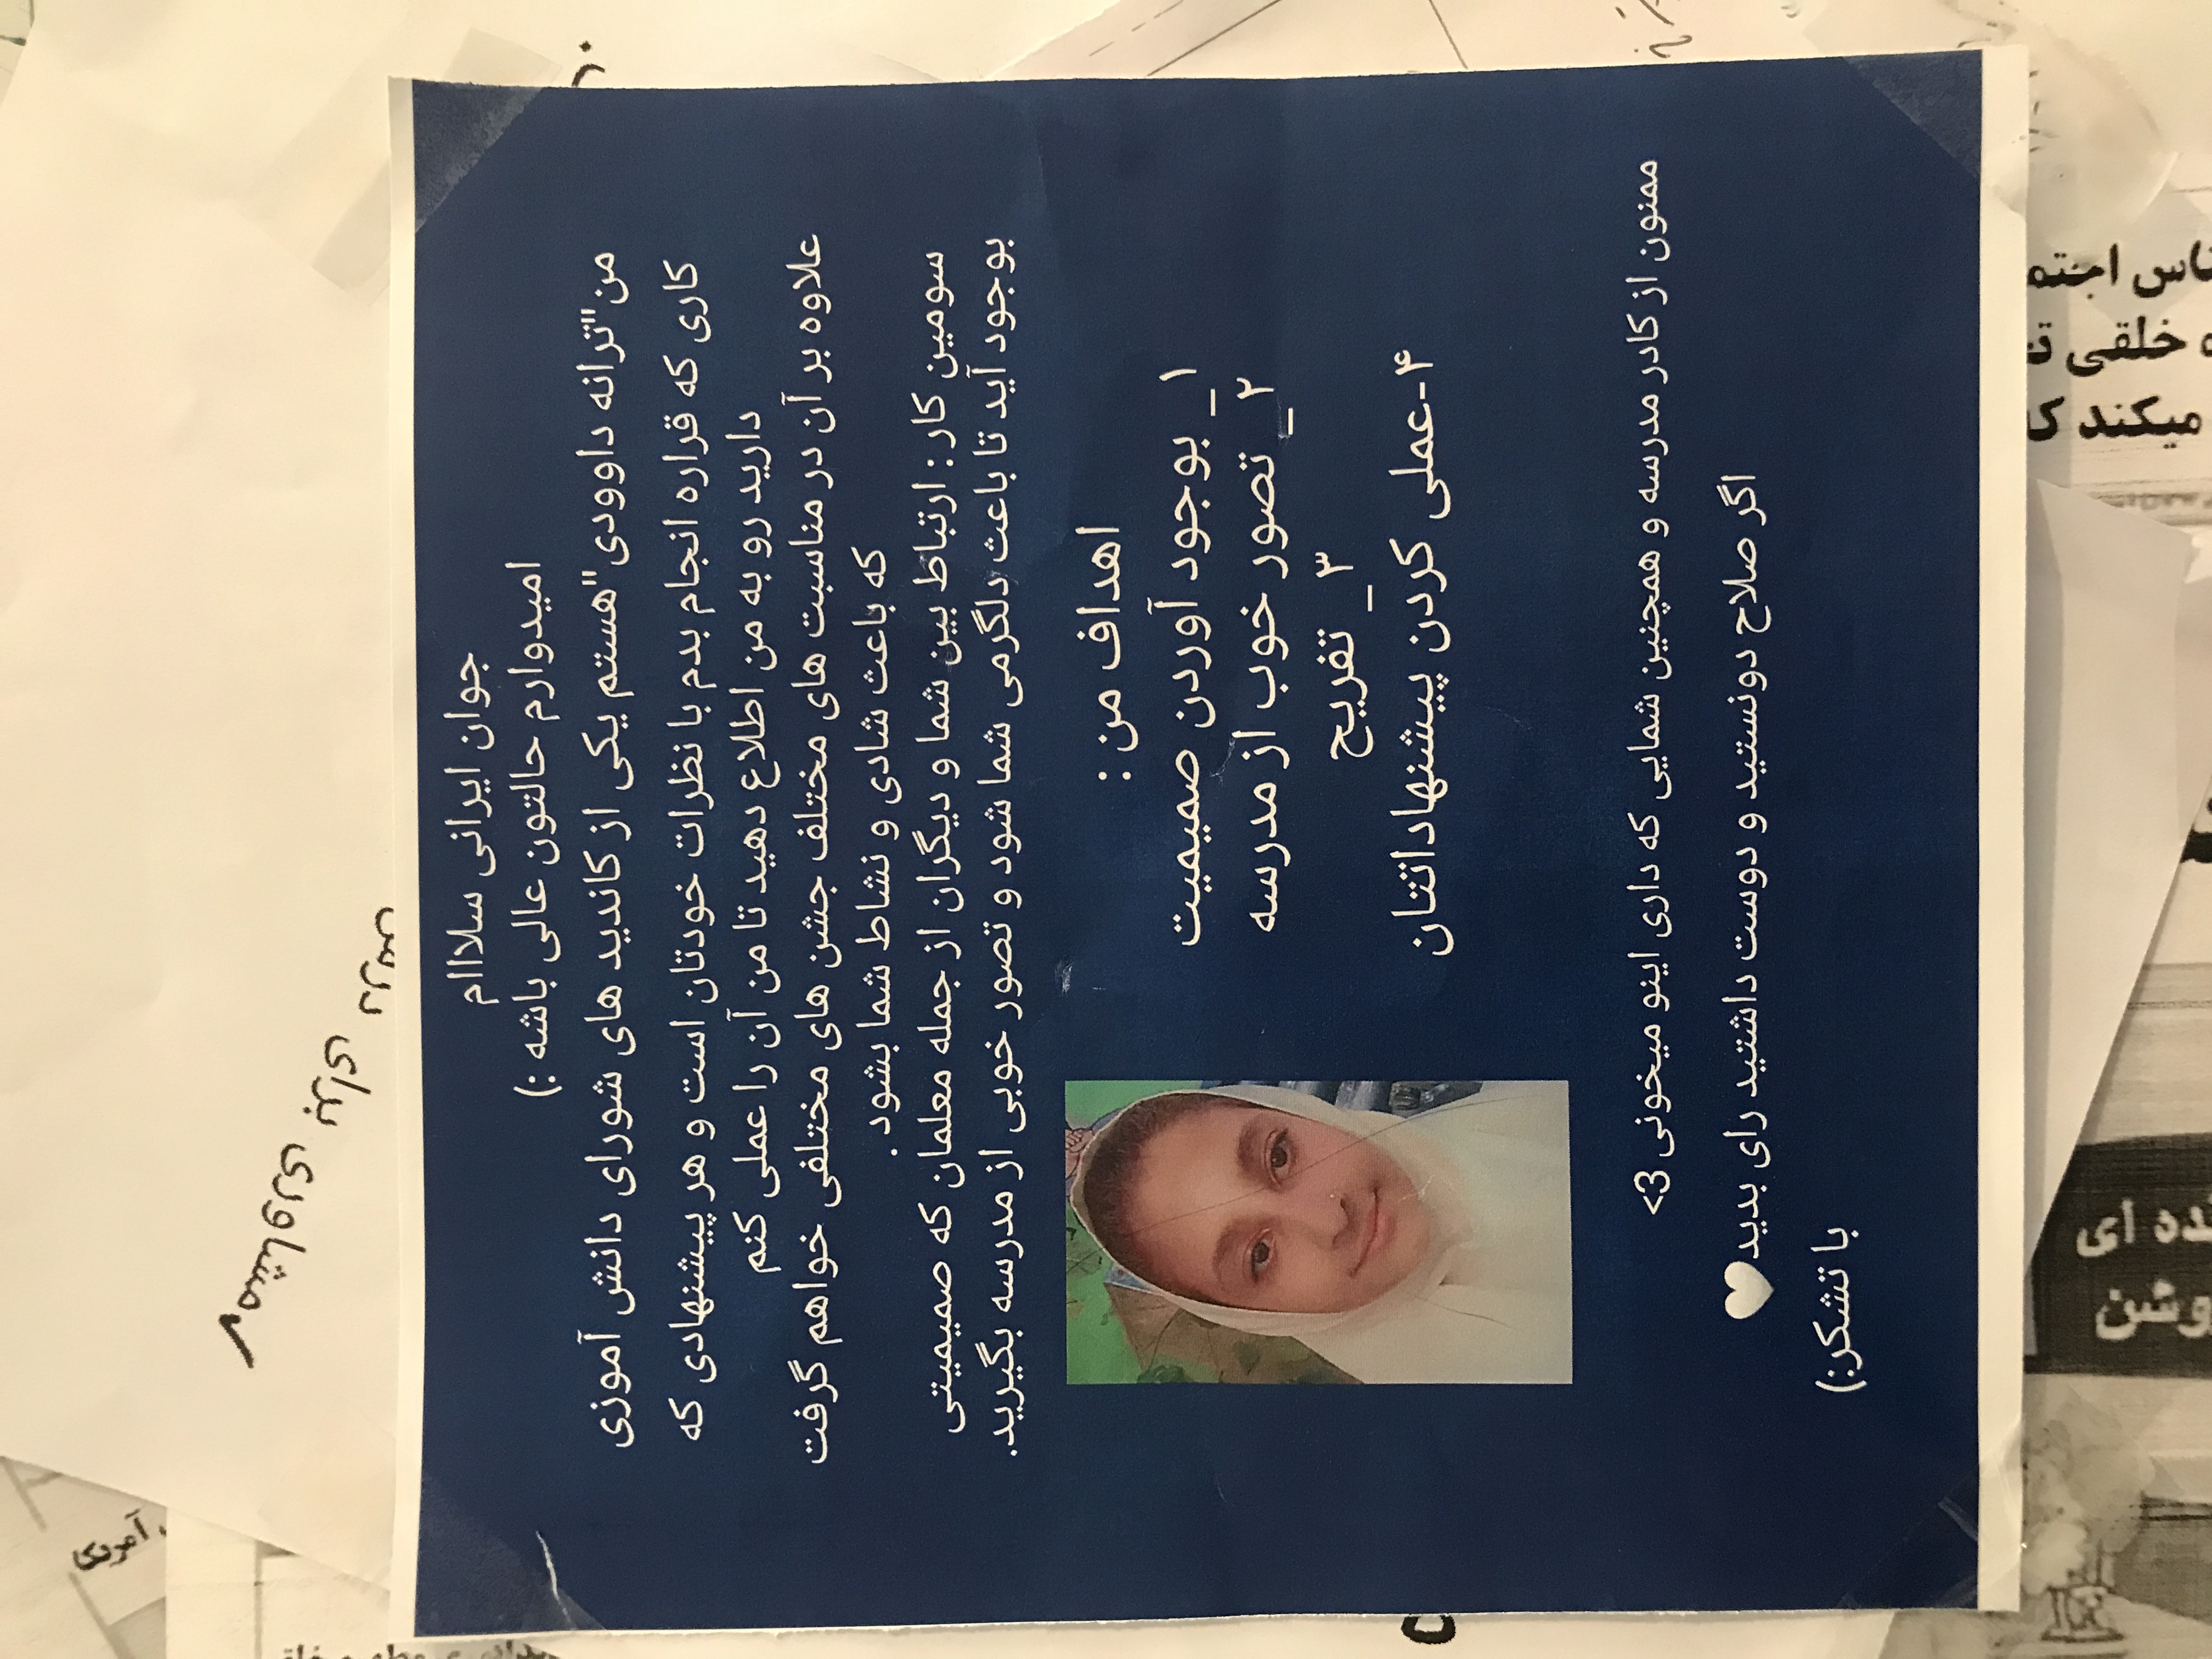 جوان ایرانی سلااام
امیدوارم حالتون عالی باشه :)
من"ترانه داوودی"هستم یکی از کاندید های شورای دانش آموزی
کاری که قراره انجام بدم با نظرات خودتان است و هر پیشنهادی که
دارید رو به من اطلاع دهید تا من آن را عملی کنم
علاوه بر آن در مناسبت های مختلف جشن های مختلفی خواهم گرفت
که باعث شادی و نشاط شما بشود .
سومین کار: ارتباط بین شما و دیگران از جمله معلمان که صمیمیتی
بوجود آید تا باعث دلگرمی شما شود و تصور خوبی از مدرسه بگیرید.
اهداف من :
۱_ بوجود آوردن صمیمیت
۲_ تصور خوب از مدرسه
۳_ تفریح
۴-عملی کردن پیشنهاداتتان
ممنون از کادر مدرسه و همچنین شمایی که داری اینو میخونی 3>
اگر صلاح دونستید و دوست داشتید رای بدید♥
با تشکر:)
مشاوری برای درس
اجتم
خلقی
میکند
ده ای
وشن
آمریکا